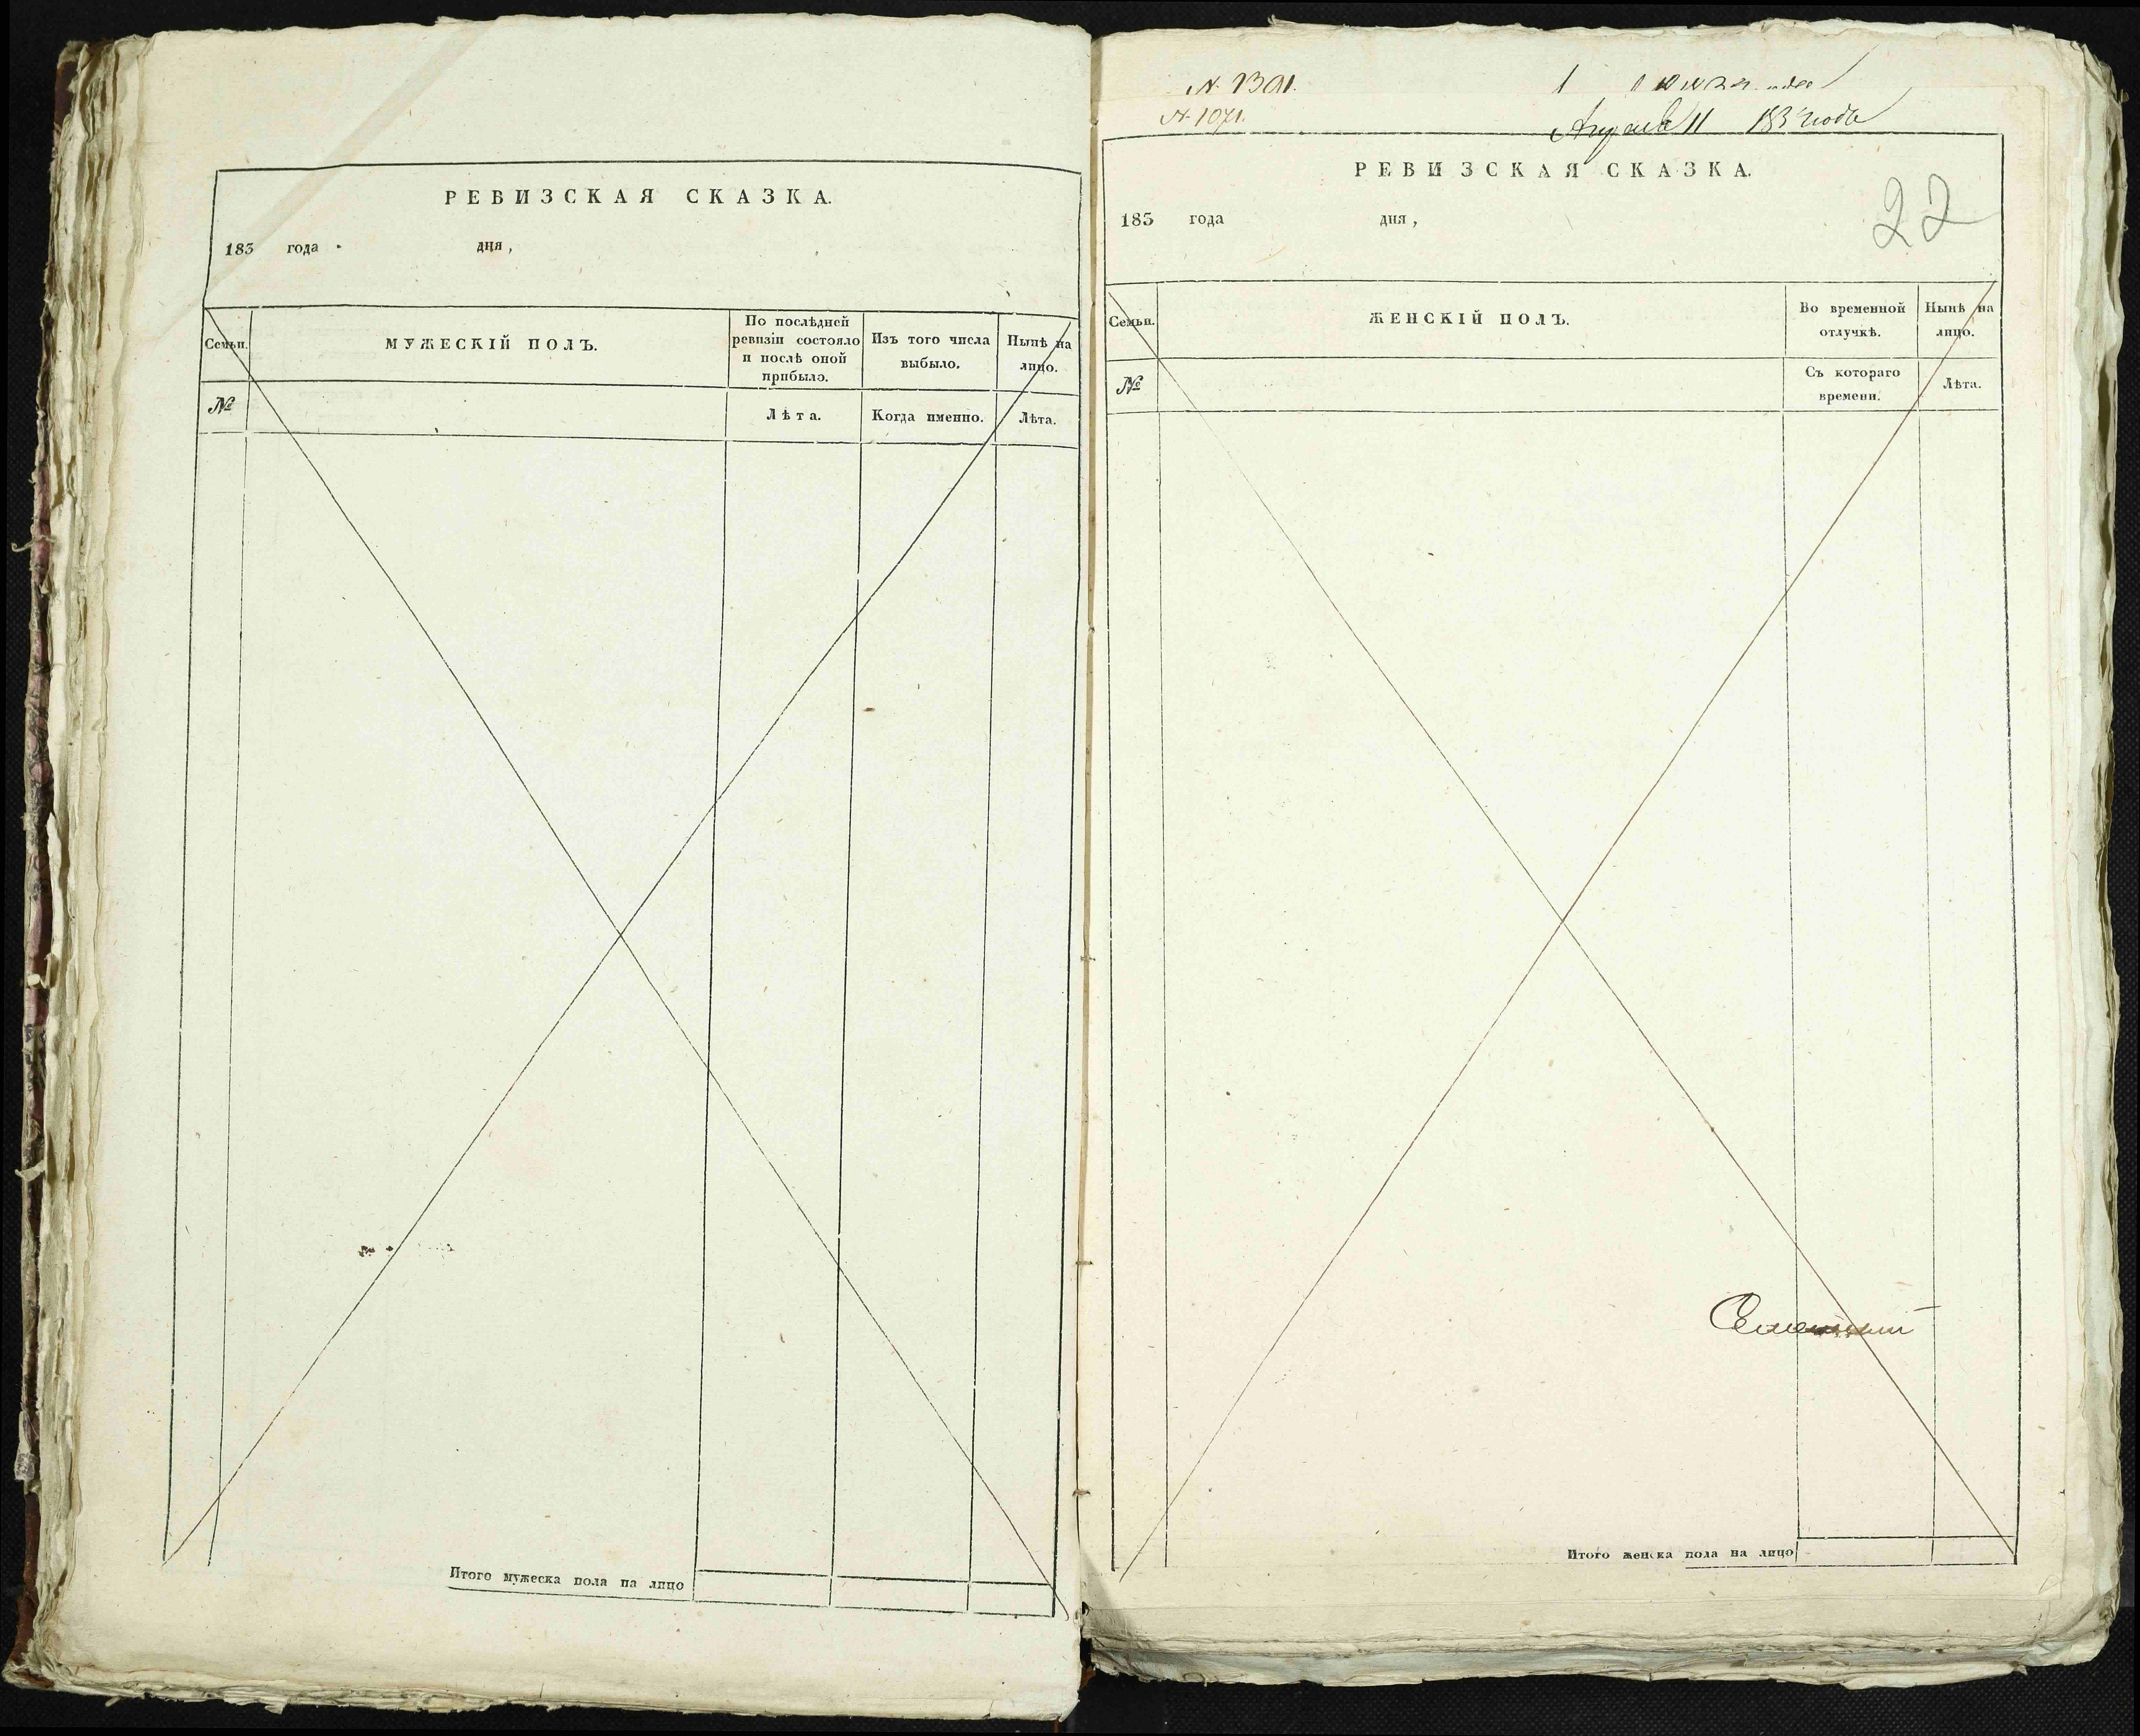 РЕВИЗСКАЯ СКАЗКА.
183 года дня,
Семьи.
МУЖЕСКІЙ ПОЛЪ.
По послѣдней
ревизіи состояло
и послѣ оной
прибыло.
Изъ того числа
выбыло.
Нынѣ на
лицо.
№
Лѣта.
Когда именно.
Лѣта.
Итого мужеска пола на лицо
N. 1301.
N. 1071.
11 183 года
РЕВИЗСКАЯ СКАЗКА.
22
183 года дня,
Семьи.
ЖЕНСКІЙ ПОЛЪ.
Во временной
отлучкѣ.
Нынѣ на
лицо.
№
Съ котораго
времени.
Лѣта.
Итого женска пола на лицо